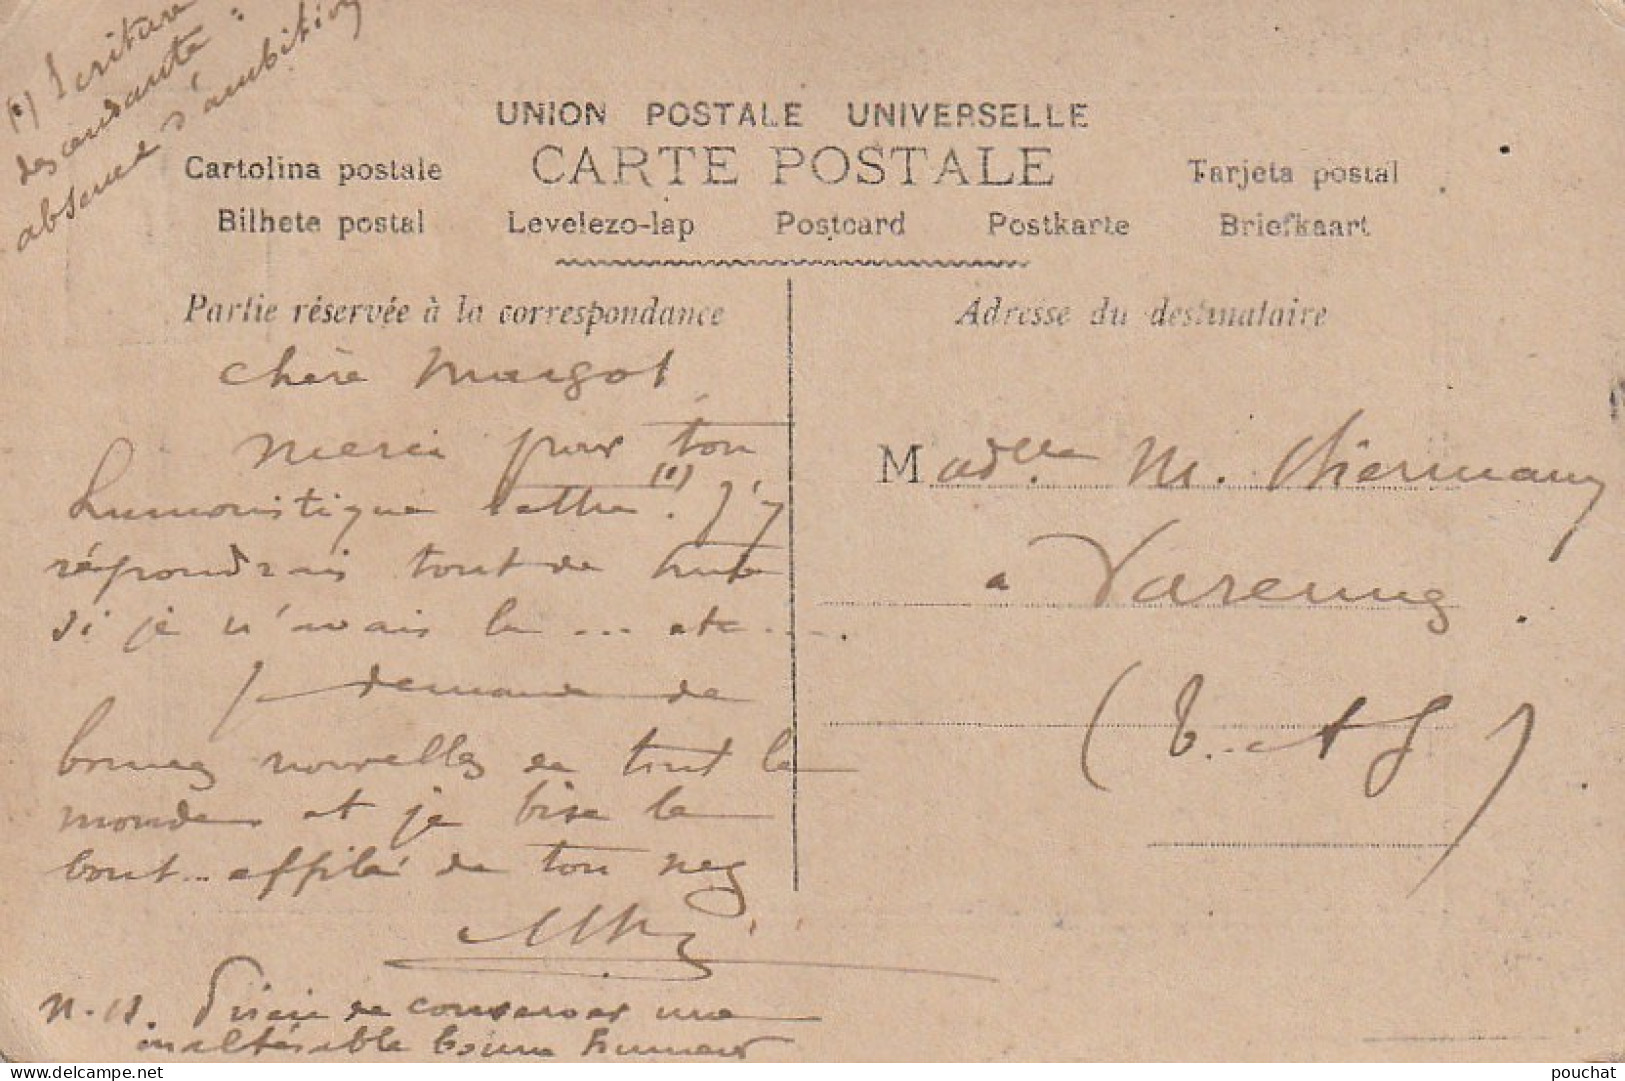 (1) Ecriture
descendante :
absence d'ambition
UNION POSTALE UNIVERSELLE
CARTE POSTALE
Cartolina postale Tarjeta postal
Bilhete postal Levelezo-lap Postcard Postkarte Briefkaart
Partie réservée à la correspondance
chère Margot
merci pour ton
humoristique lettre (1). J'y
répondrais tout de suite
si je n'avais la ... etc ....
Je demande de
bonnes nouvelles de tout le
monde et je bise le
bout .. affilé de ton nez
N.B. Prière de conserver une
inaltérable bonne humeur
Adresse du destinataire
Madelle. M.
a Varennes.
(T. et G)
pouchat